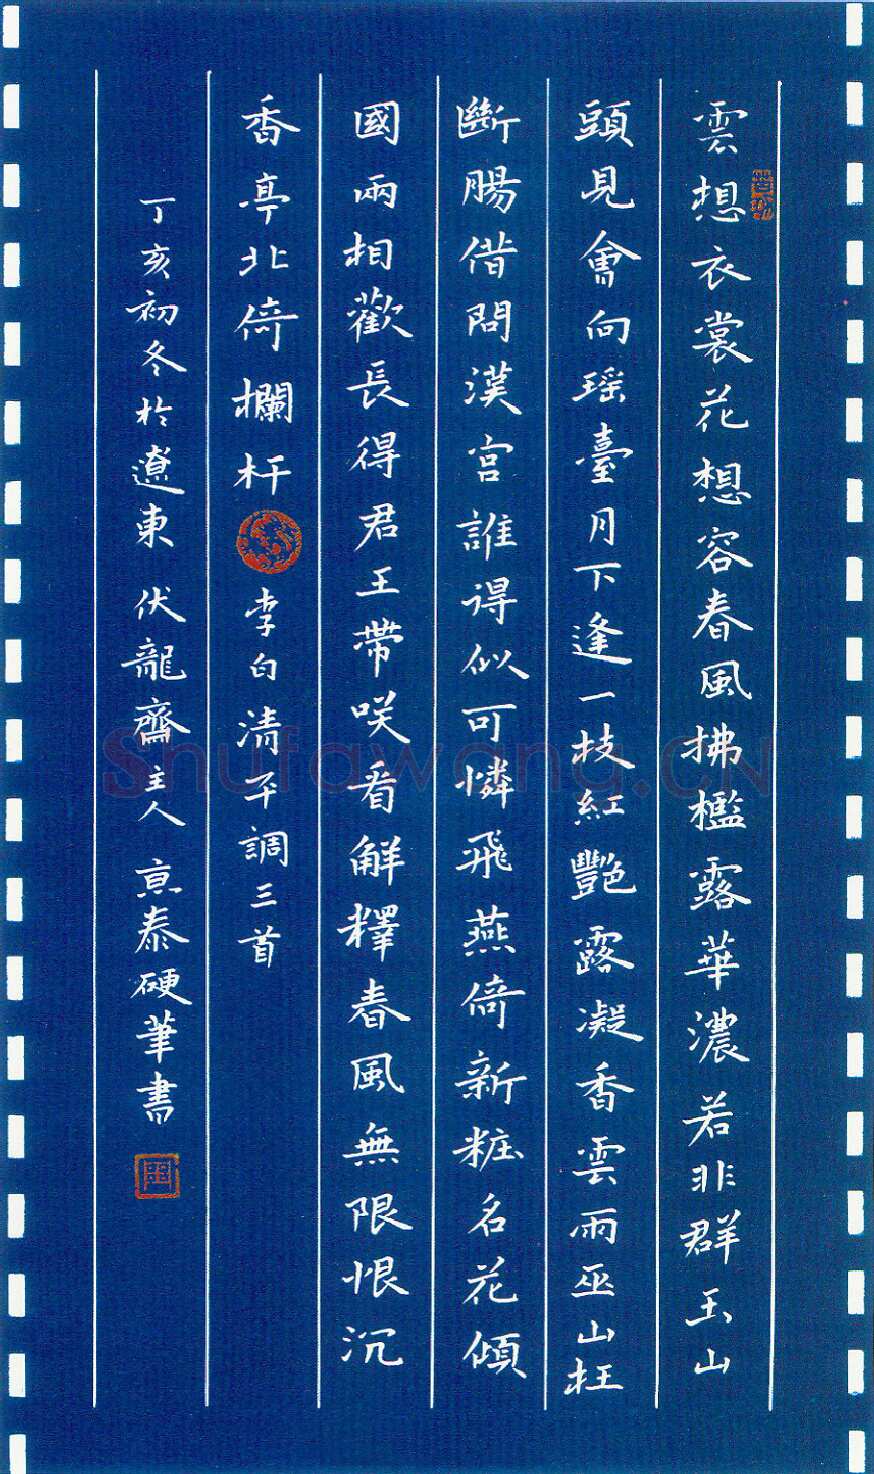 雲想衣裳花想容春風拂檻露華濃若非群玉山
頭見會向瑶臺月下逢一枝紅艷露凝香雲雨巫山枉
斷腸借問漢宫誰得似可憐飛燕倚新粧名花傾
國兩相歡長得君王帶咲看解釋春風無限恨沉
香亭北倚欄杆 李白清平調三首
丁亥初冬於遼東 伏龍齋主人 京泰硬筆書
Shufawang.CN